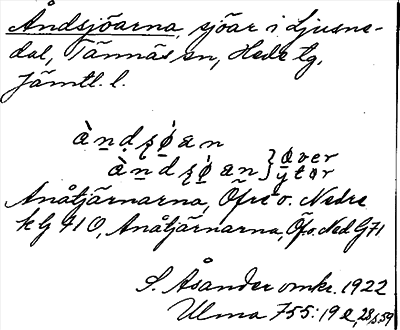 Åndsjöarna, sjöar i Ljusne-
dal, Tännäs sn, Hede tg,
Jämtl. l.
àndʂǿan } øver
àndʂǿan } ytər
Anåtjärnarna, Öfre o. Nedre
k G 41 O, Anåtjärnarna, Öf.o.Ned G71
S. Åsander omkr. 1922
Ulma 755:19 e, 28, s. 59